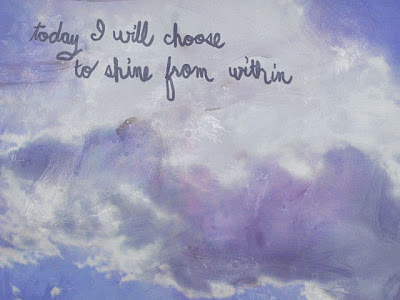 today I will choose
to shine from within